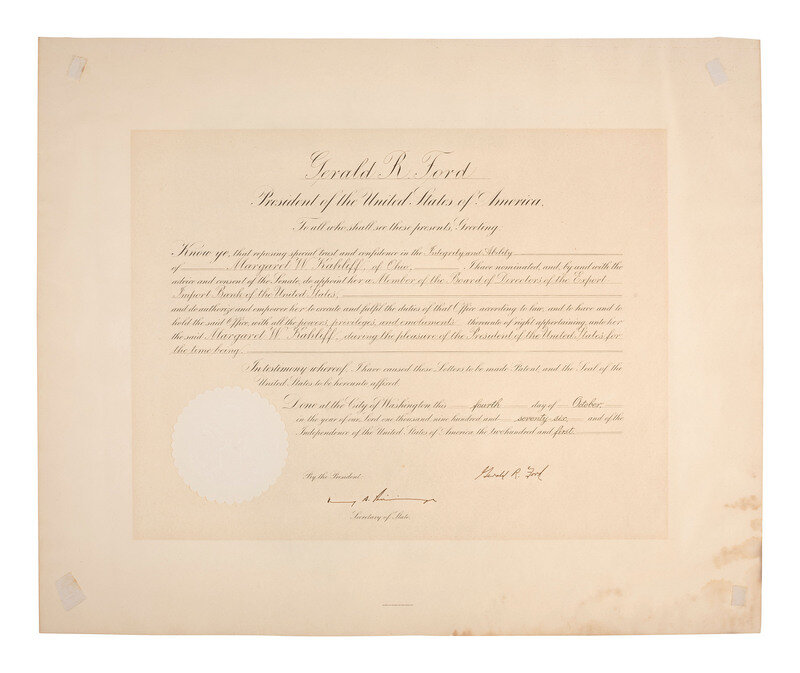 Gerald R. Ford
President of the United States of America.
To all who shall see these presents, Greeting:
Know ye, that reposing special trust and confidence in the Integrity and Ability
of Margaret W. Kahliff, of Ohio, I have nominated, and, by and with the
advice and consent of the Senate, do appoint her a Member of the Board of Directors of the Export
Import Bank of the United States,
and do authorize and empower her to execute and fulfil the duties of that Office according to law, and to have and to
hold the said Office, with all the powers, privileges, and emoluments thereunto of right appertaining, unto her
the said Margaret W. Kahliff, during the pleasure of the President of the United States for
the time being.
In testimony whereof, I have caused these Letters to be made Patent and the Seal of the
United States to be hereunto affixed.
Done at the City of Washington this fourth day of October,
in the year of our Lord one thousand nine hundred and seventy-six, and of the
Independence of the United States of America the two hundred and first.
By the President:
Gerald R. Ford
Secretary of State.